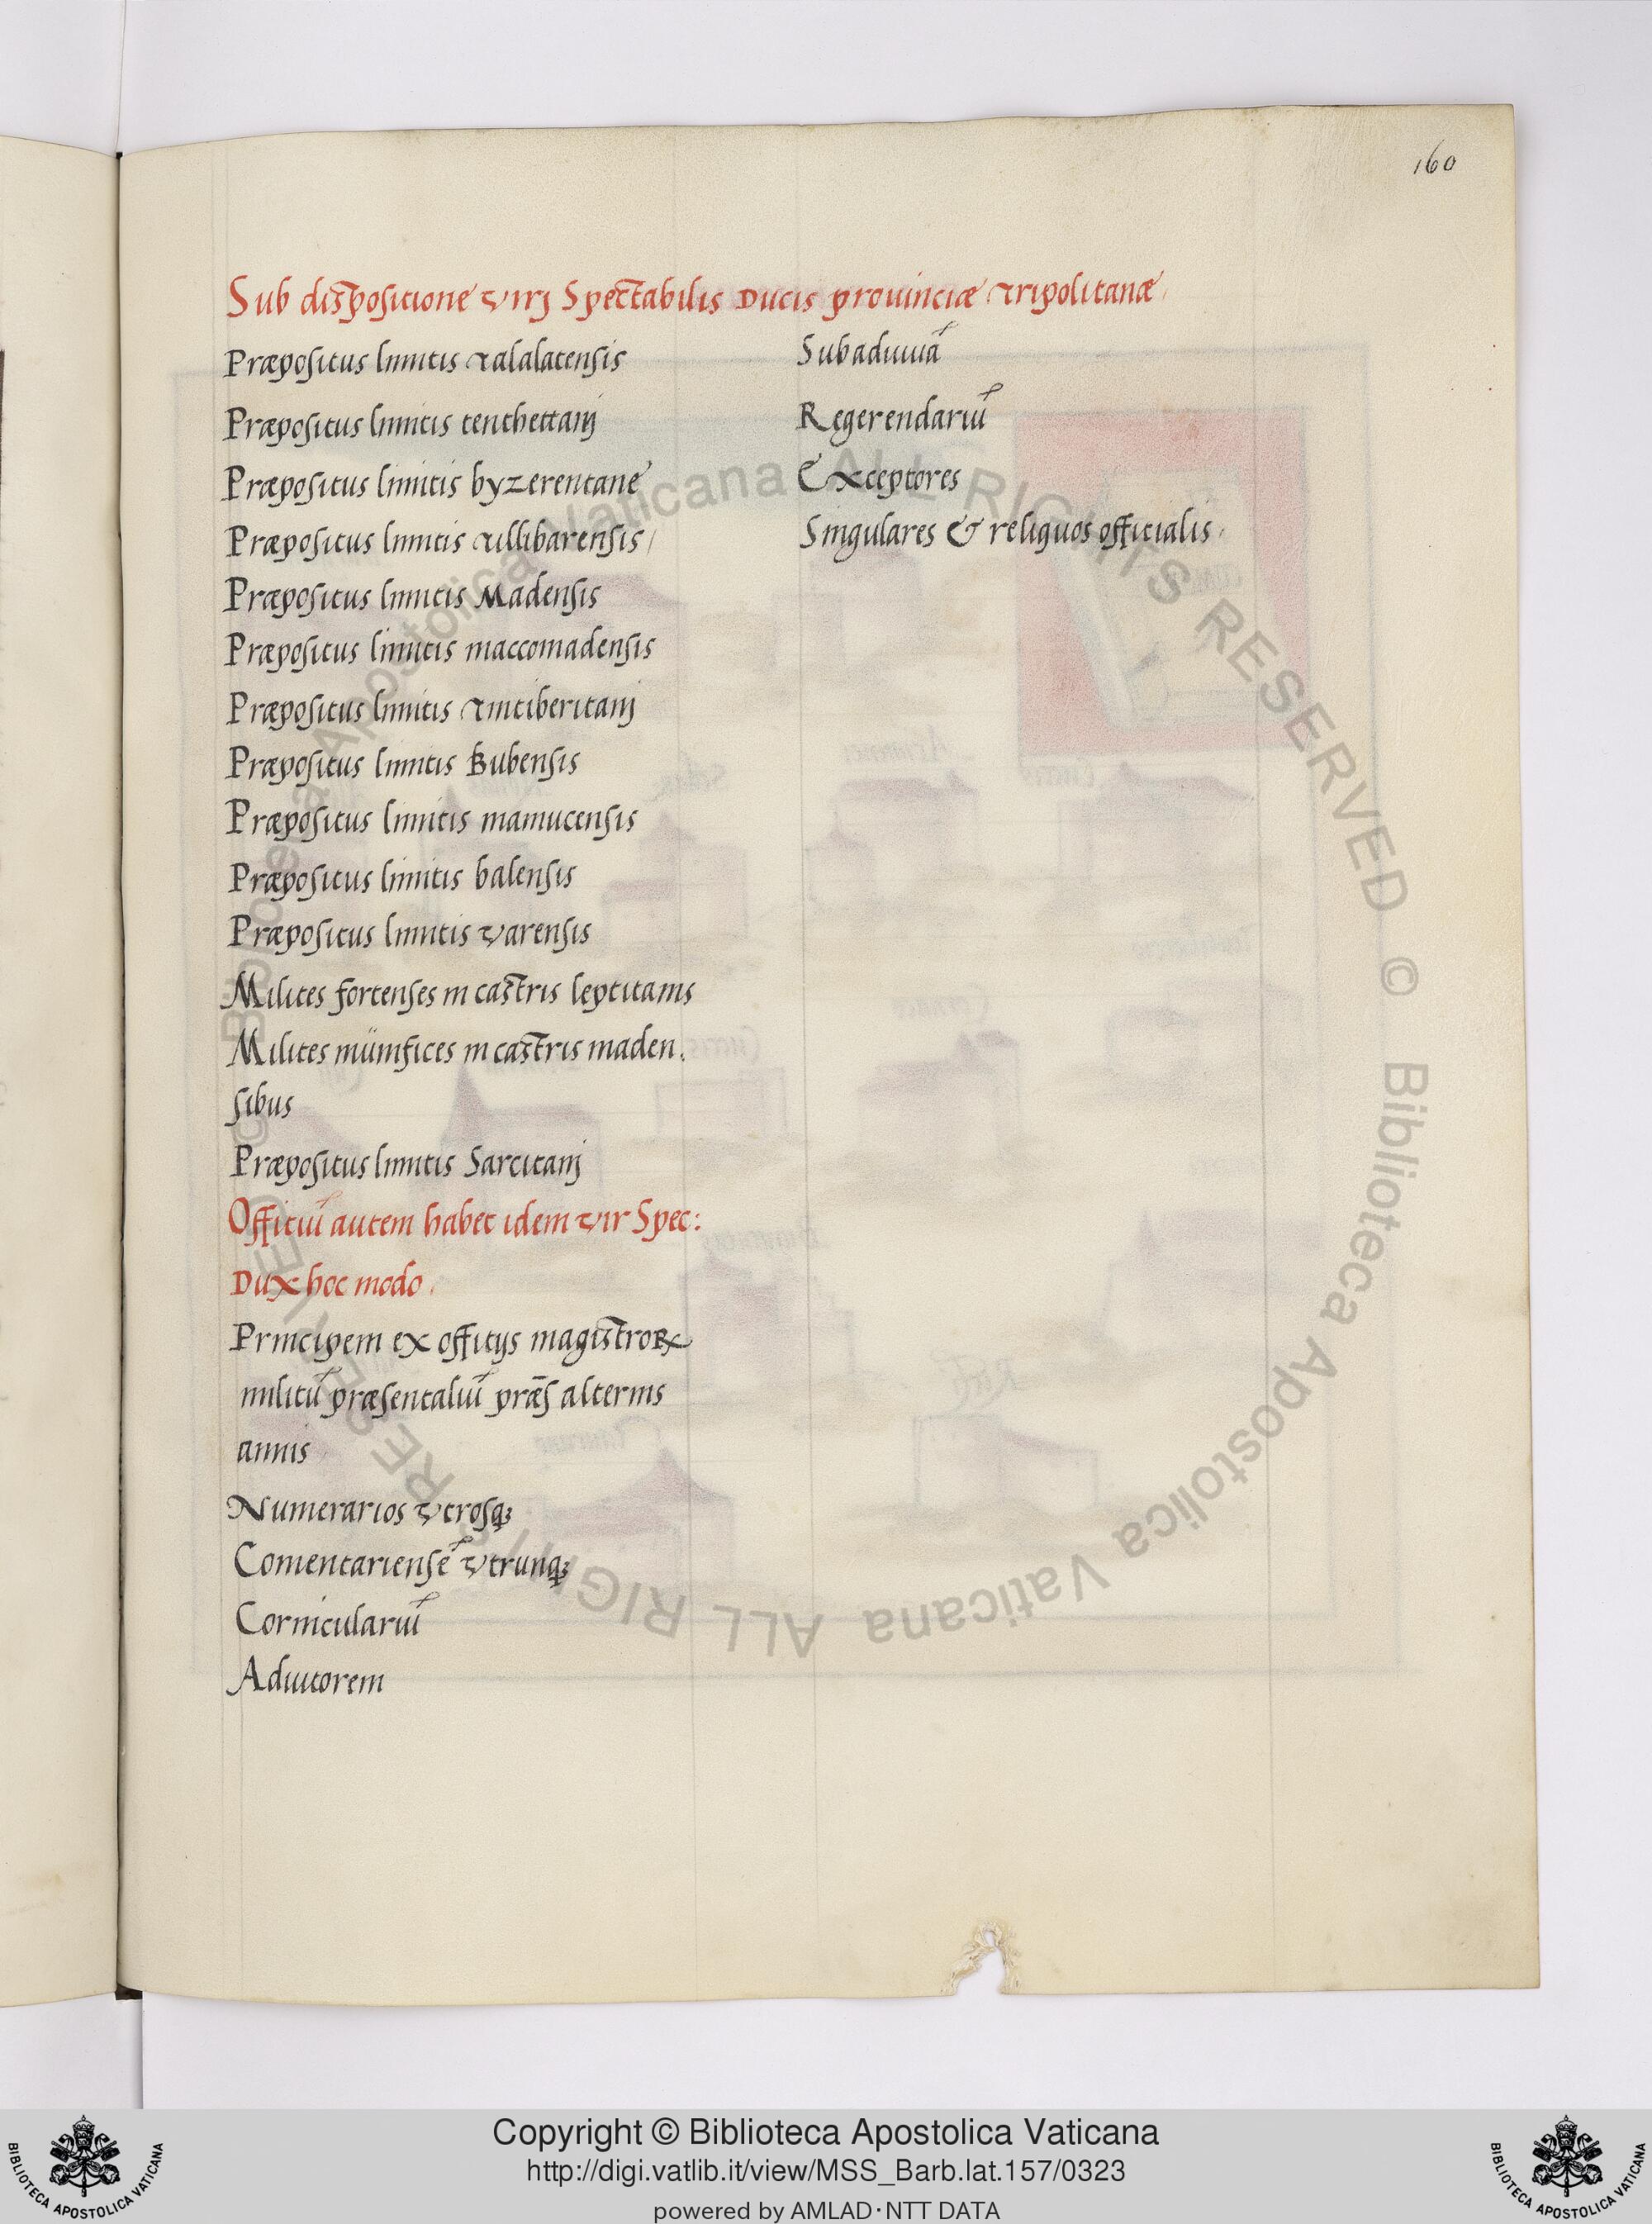 160
Sub dispositione virj Spectabilis Ducis prouinciæ tripolitanæ
Præpositus limitis talalatensis
Præpositus limitis tenthettanj
Præpositus limitis byzerentane
Præpositus limitis tillibarensis
Præpositus limitis Madensis
Præpositus limitis maccomadensis
Præpositus limitis tintiberitanj
Præpositus limitis Bubensis
Præpositus limitis mamucensis
Præpositus limitis balensis
Præpositus limitis varensis
Milites fortenses in castris leptitanis
Milites münifices in castris maden.
sibus
Præpositus limitis Sarcitanj
Officiū autem habet idem vir Spec:
Dux hoc modo.
Principem ex officijs magistroꝝ
militū præsentaliū præs̄ alternis
annis
Numerarios vtrosq;
Comentariensē vtrunq;
Corniculariū
Adiutorem
Subadiuuā
Regerendariū
Exceptores
Singulares & reliquos officialis.
© Biblioteca Apostolica Vaticana ALL RIGHTS RESERVED © Biblioteca Apostolica Vaticana ALL RIGHTS RESERVED
Copyright © Biblioteca Apostolica Vaticana
http://digi.vatlib.it/view/MSS_Barb.lat.157/0323
powered by AMLAD·NTT DATA
BIBLIOTECA APOSTOLICA VATICANA
BIBLIOTECA APOSTOLICA VATICANA